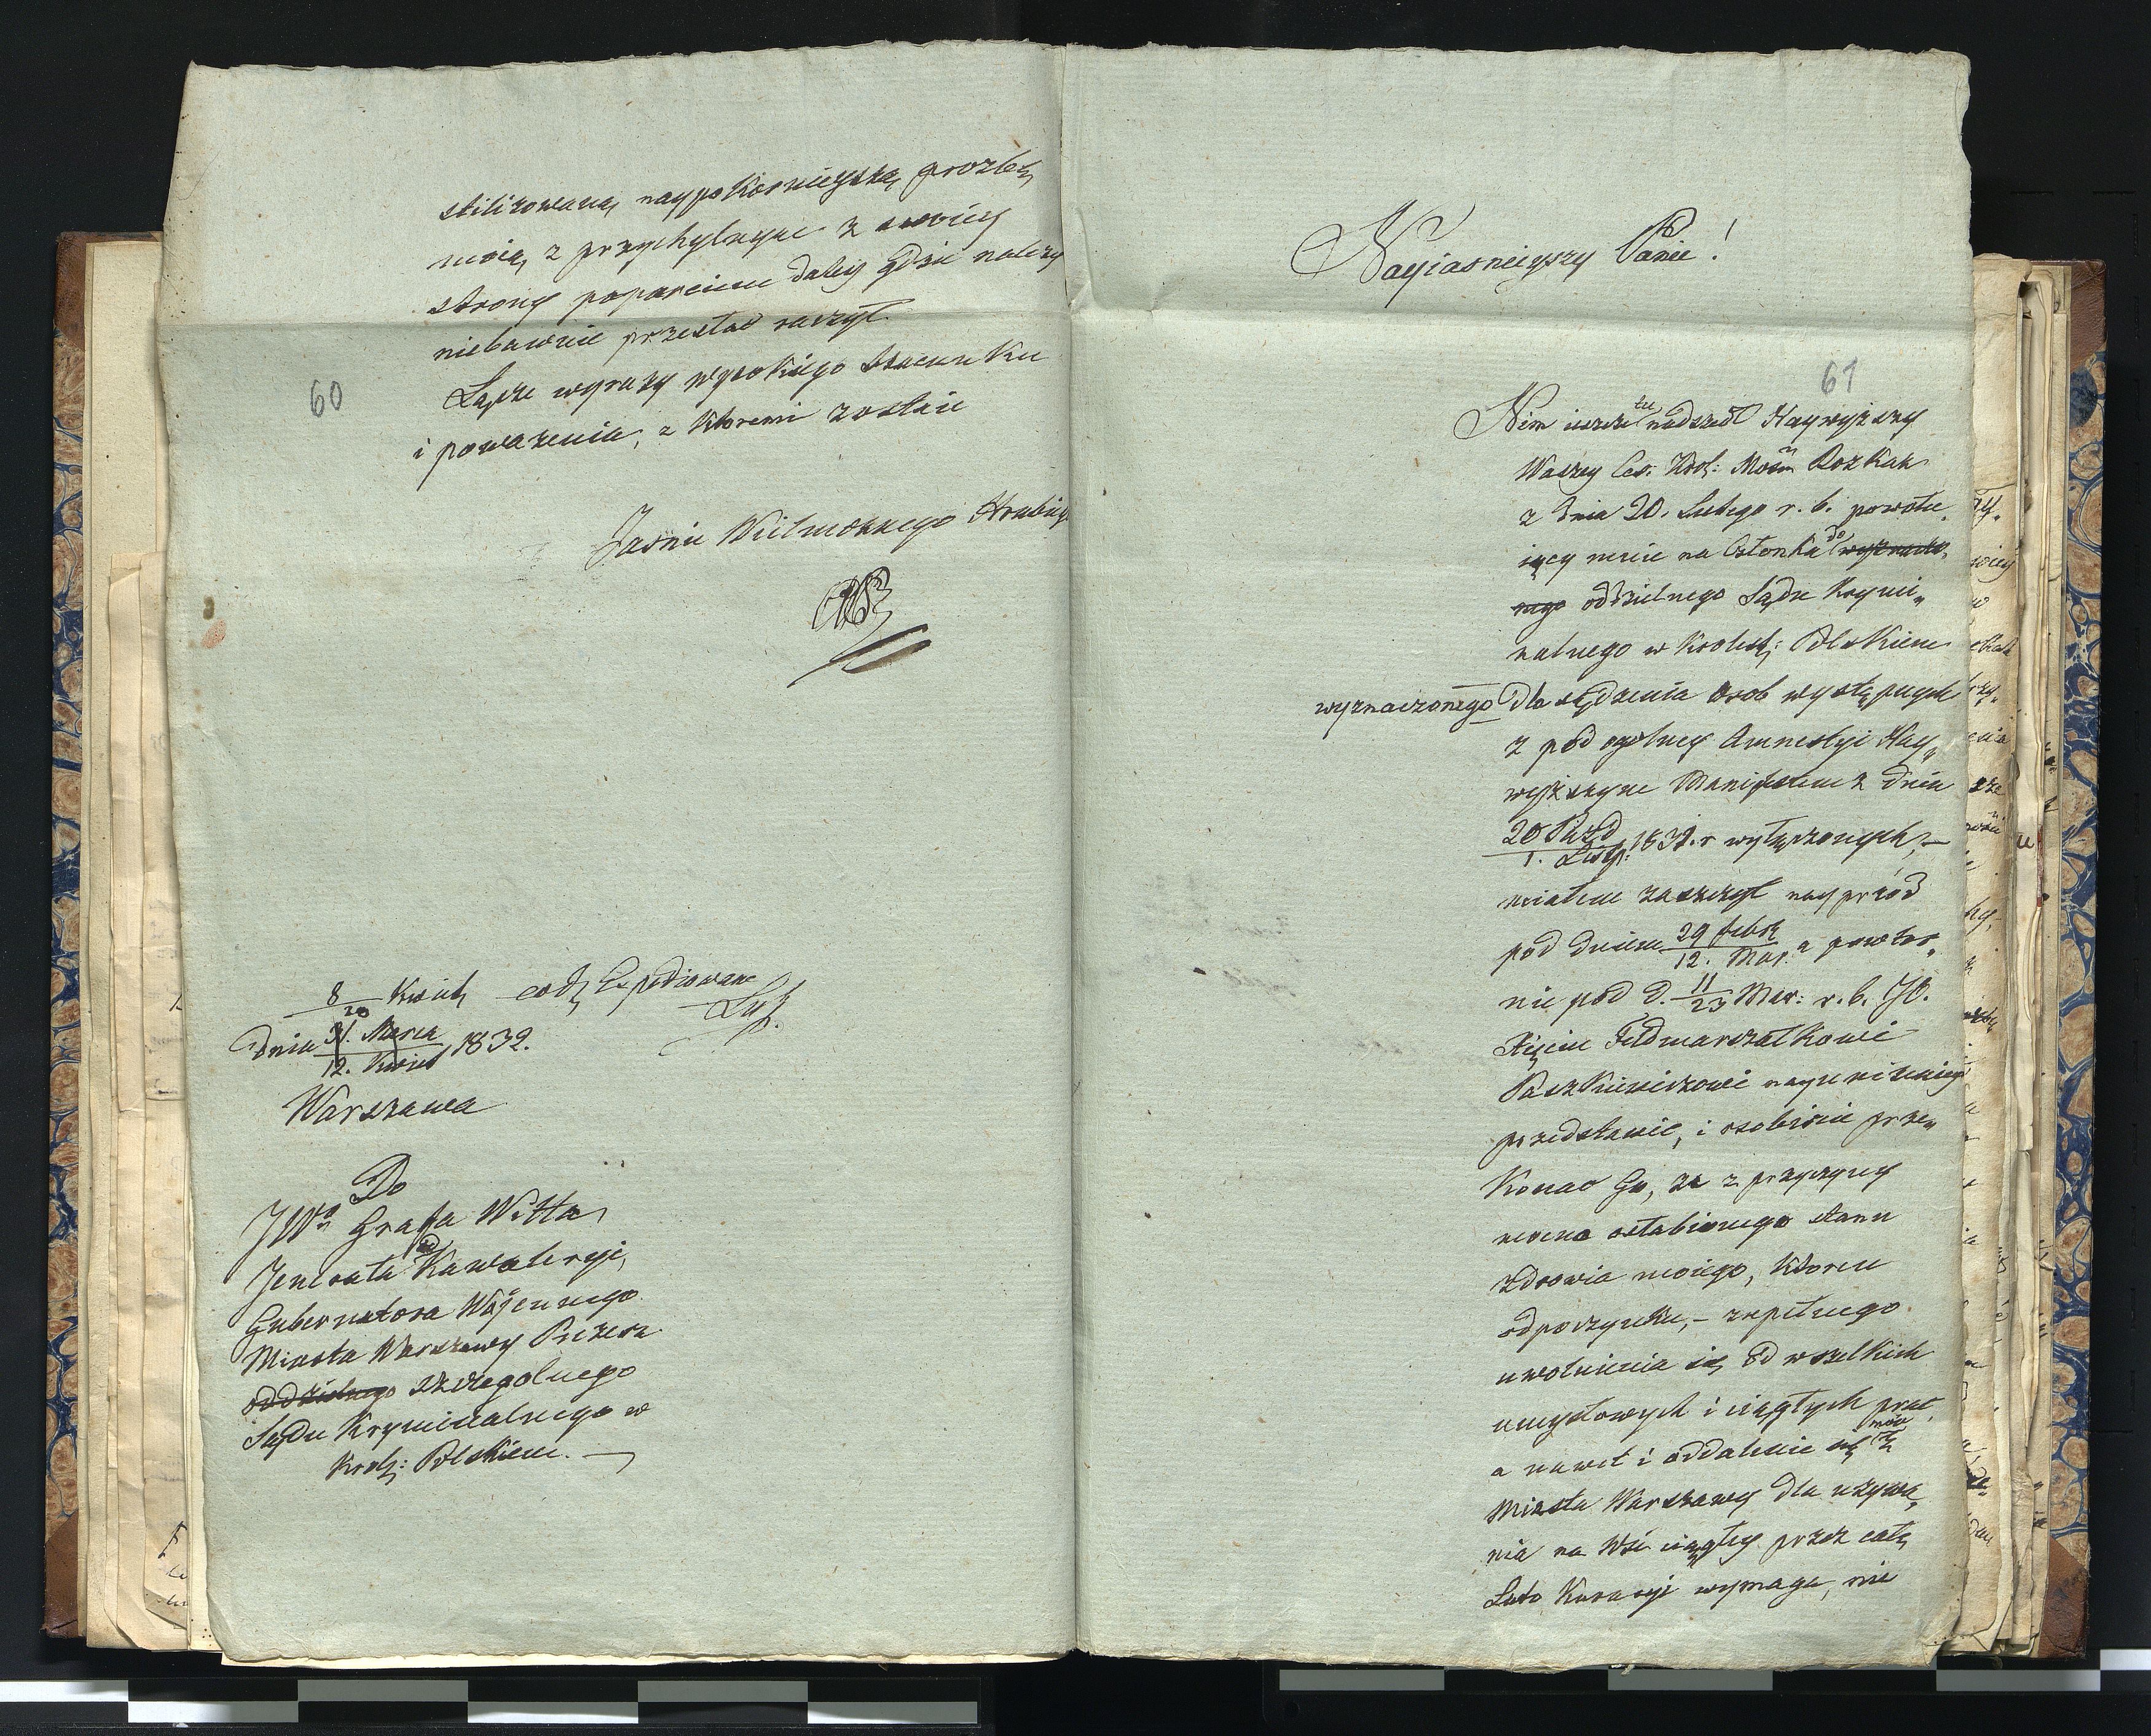 stilizowaną naypokornieyszą prozbę
moią, z przychylnym z swoiey
strony poparciem daley gdzie należy
niebawnie przesłać raczył.
60
Łącze wyrazy wysokiego szacunku
i poważenia, z ktoremi zostaie
Jasnie Wielmożnego Hrabiego
8/20 Kwiet expediowane
Dnia 31. Marca/12. Kwiet 1832.
Warszawa
Do
JWo Grafa Witta
Jenerała od Kawaleryi,
Gubernatora Wojennego
Miasta Warszawy Prezesa
oddzielnego szczegolnego
Sądu Kryminalnego w
Krolt: Polskiem.
Nayiasnieyszy Panie!
61
Nim ieszcze tu nadszedł Naywyższy
Waszey Ces: Krol: Mośći Rozkaz
z dnia 20. Lutego r. b. powołu„
iący mnie na Członka do wyznaczo„
nego oddzielnego Sądu Krymi„
nalnego w Krolest: Polskiem
wyznaczonego dla sądzenia osob występnych
z pod ogolney Amnestyi Nay„
wyższym Manifestem z dnia
20 Pazd/1. List: 1831. r wyłączonych,—
miałem zaszczyt nayprzód
pod dniem 29 febr/12. Mar. a powtor„
nie pod d. 11/23 Mar: r. b. JO.
Xięciu Feldmarszałkowi
Paszkiewiczowi nayuniżeniey
przedstawić, i osobiście prze„
konać Go, że z przyczyny
mocno osłabionego stanu
zdrowia moiego, ktoren
odpoczynku,– zupełnego
uwolnienia się od wszelkich
umysłowych i ciągłych prac
a nawet i oddalenie się z mów
Miasta Warszawy dla używa„
nia na Wsi ciągłey przez całe
Lato Kuracyi wymaga, nie